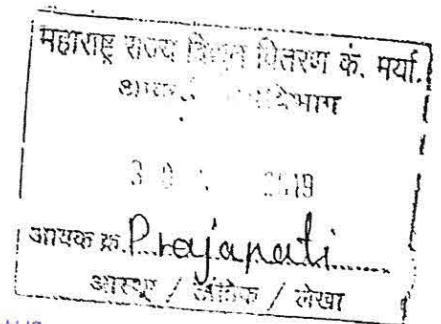 महाराष्ट्र राज्य विद्युत वितरण कं. मर्या.
30 2019
आवक क्र. Prajapati
आस्था / तांत्रिक / लेखा